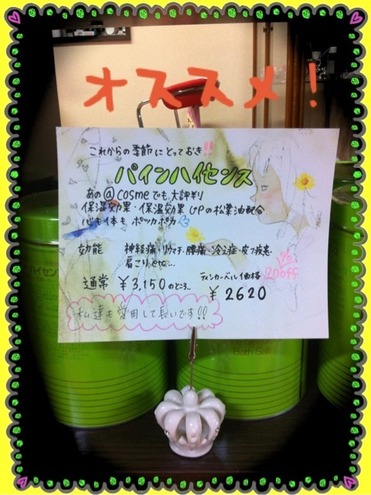 オススメ!
これからの季節にとっておき!!
パインハイセンス
あの@cosmeでも大評判
保温効果・保湿効果 UPの松葉油配合
心も体もポッカポカ
効能 神経痛・リウマチ・腰痛・冷え症・皮フ疾患
肩こりなど…
通常 ¥3,150のところ…
ティンカーベル価格
¥2620
off
私達も愛用して長いです!!
ハイセンス
Bath Salt